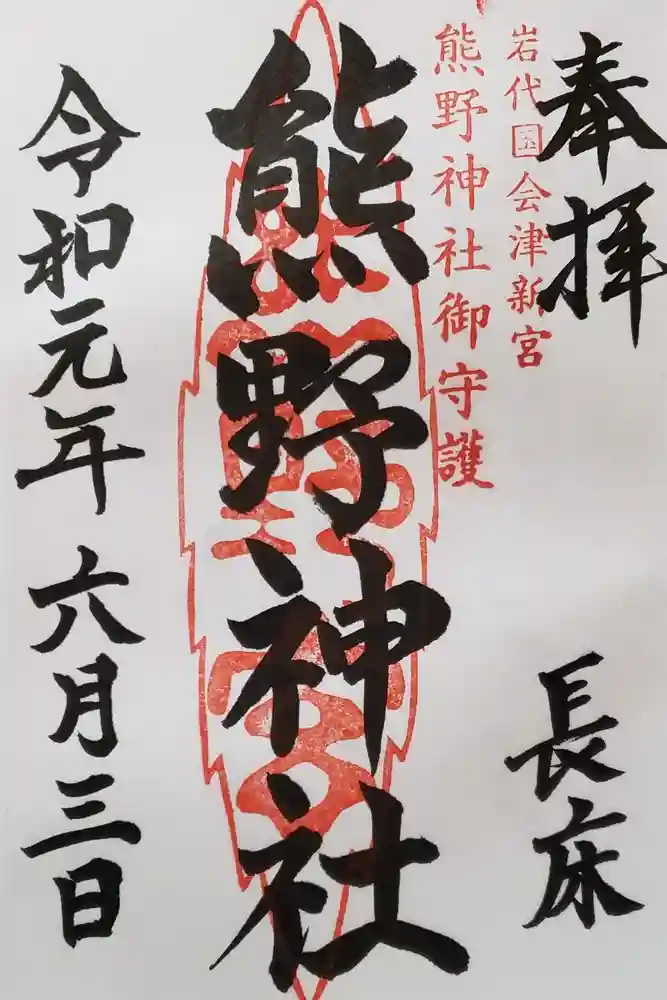 奉拝
長床
岩代国会津新宮
熊野神社御守護
熊野神社
令和元年六月三日